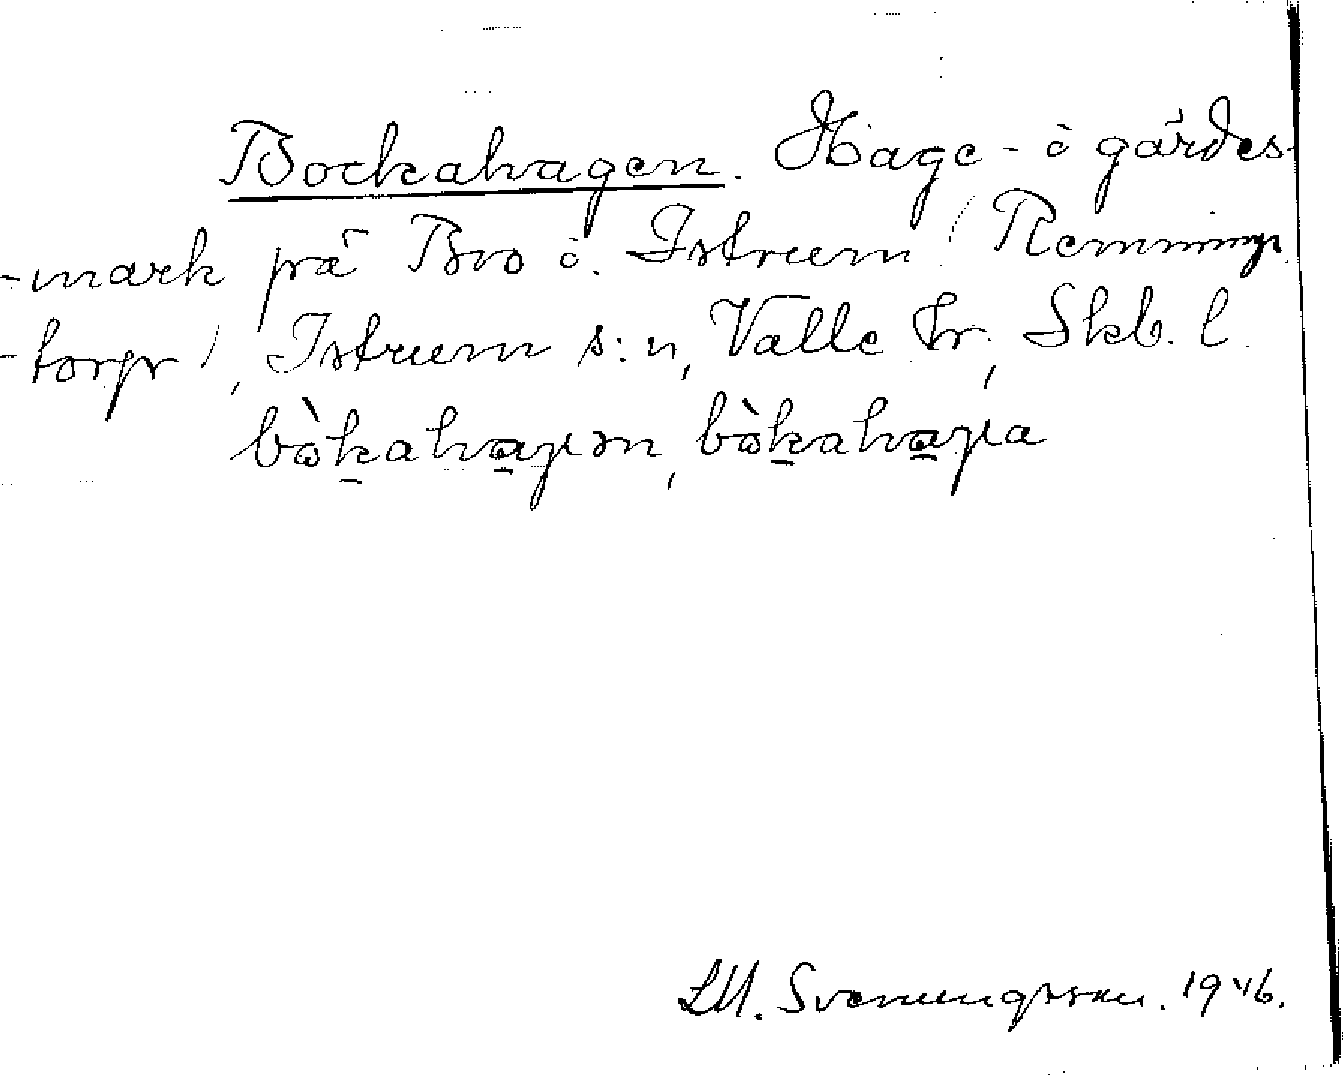 Bockahagen. Hage- o gärdes-
-mark på Bro o. Istrum (Remmings-
-torp), Istrum s:n, Valle hr, Skb. l.
bòkahaɡən, bòkahaɡa
LM. Svenungsson. 1946.